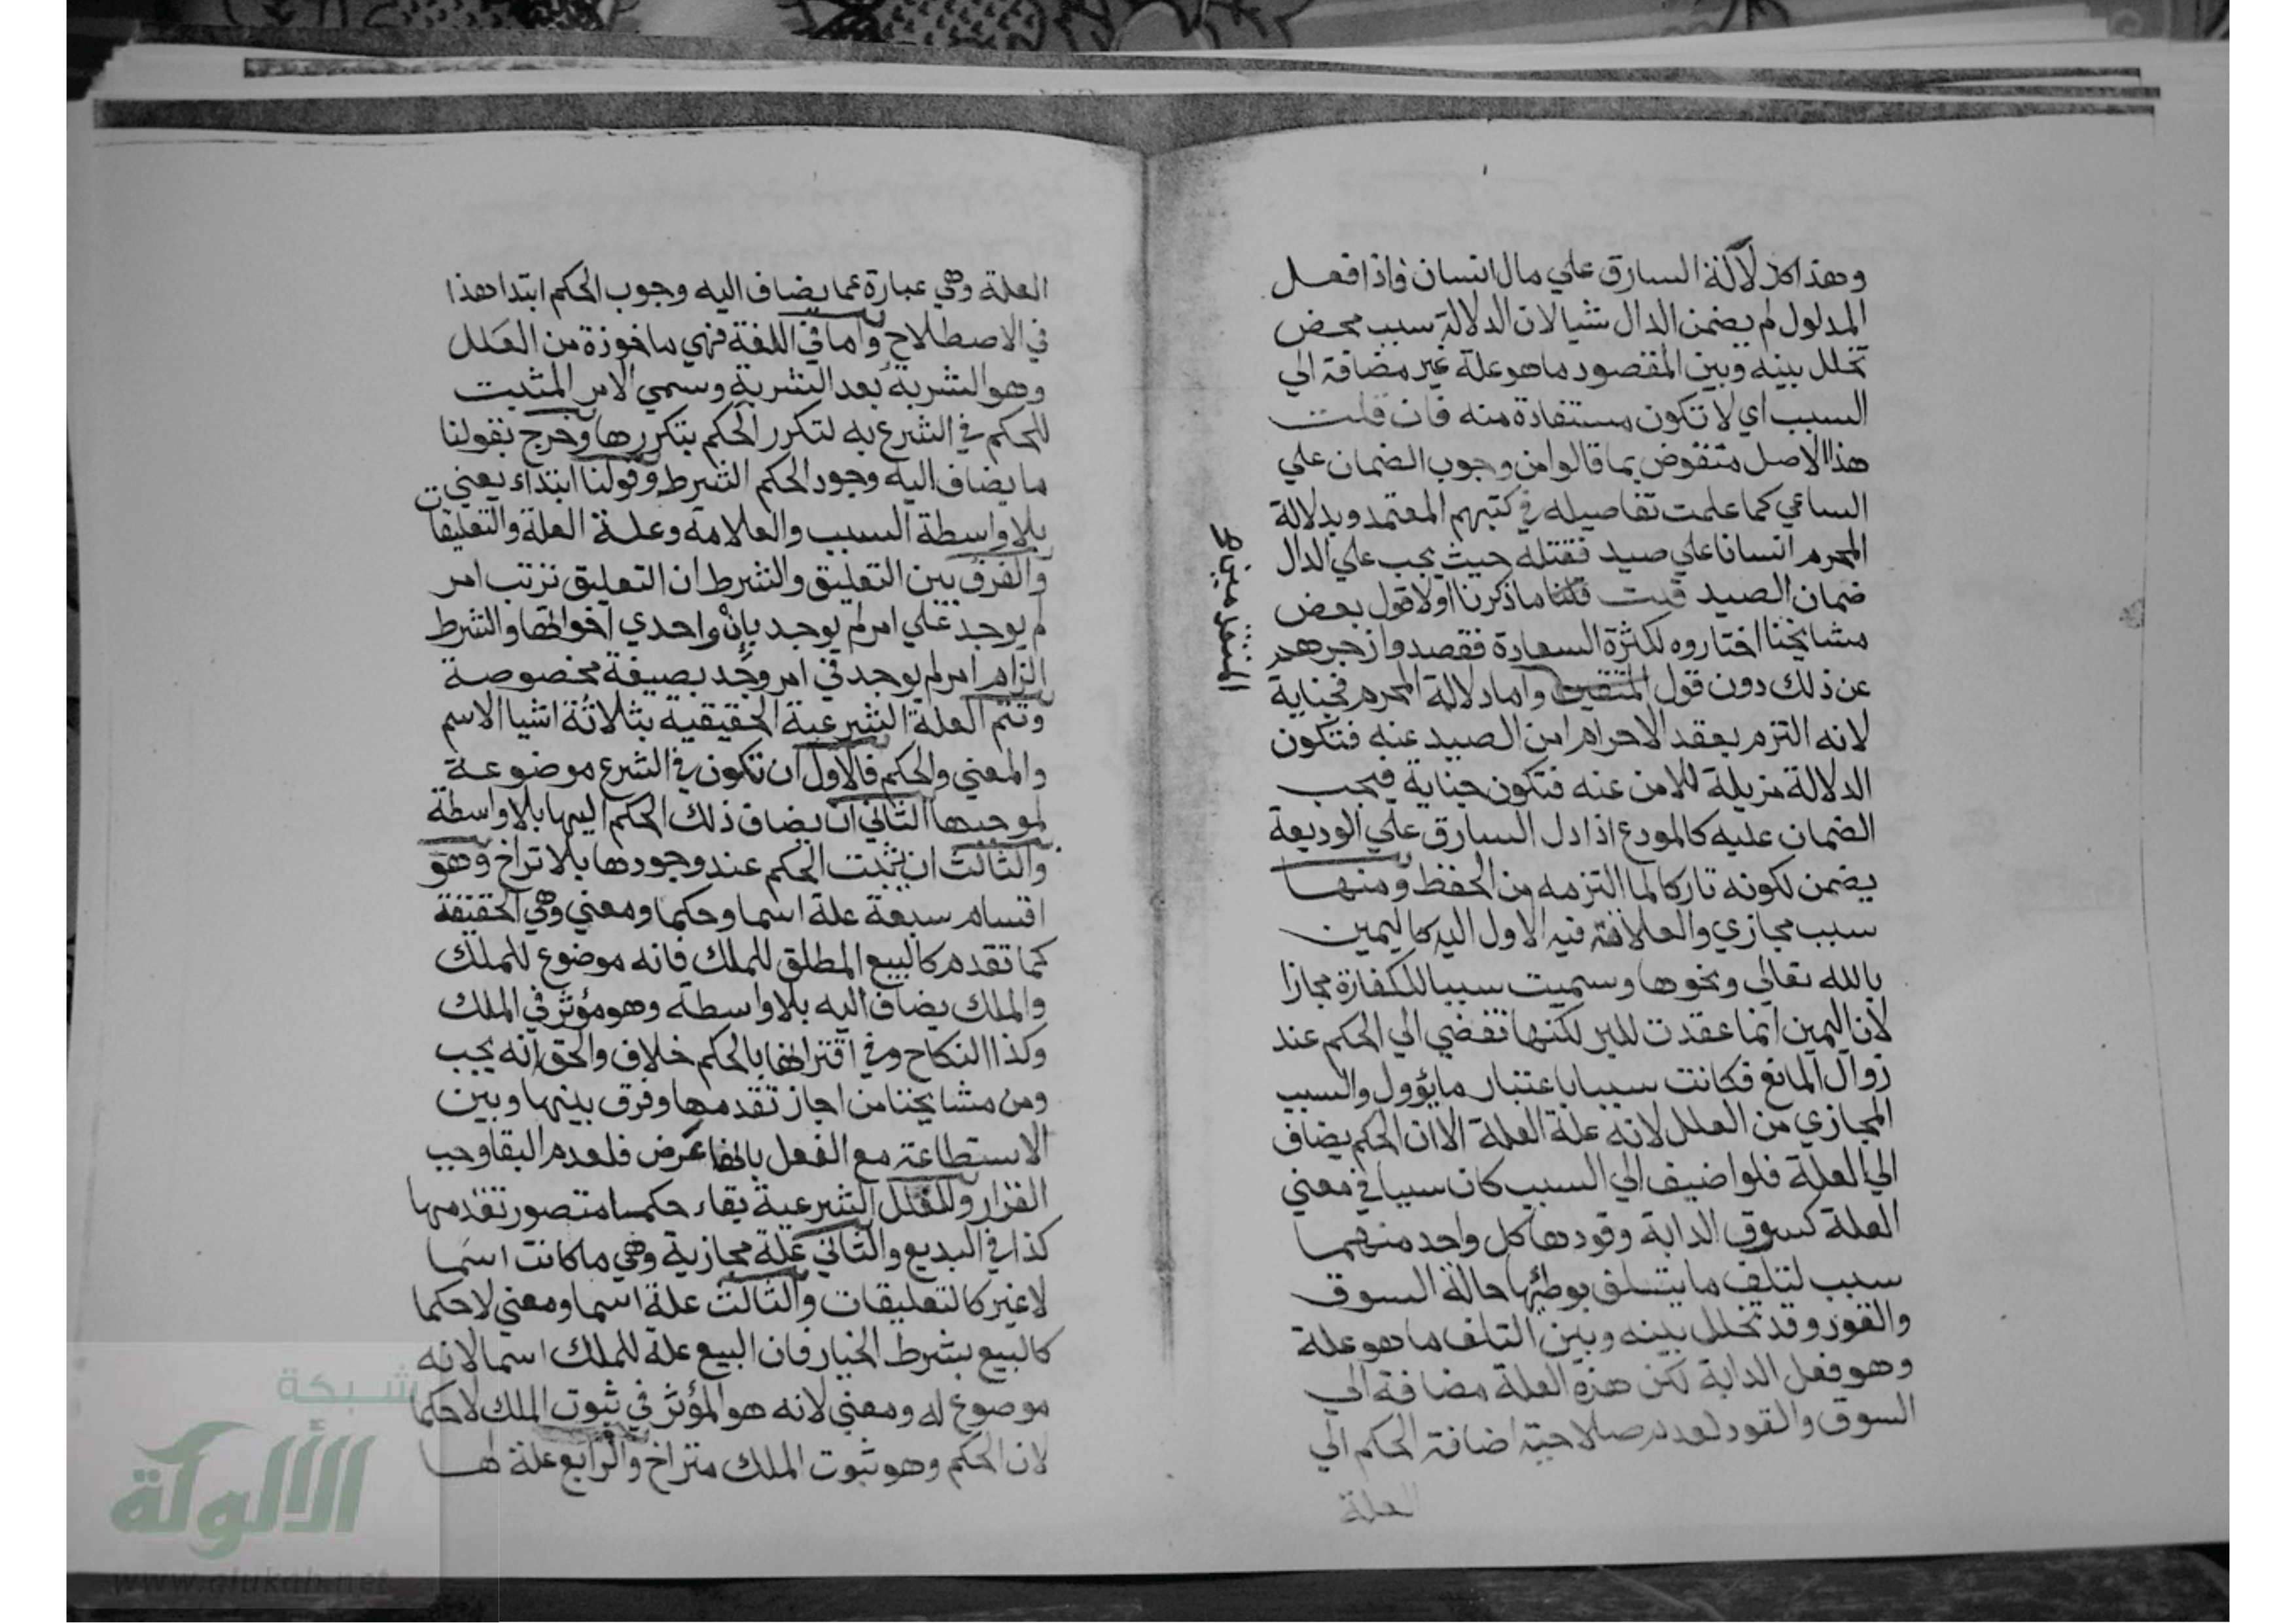 وهذا كدلالة السارق علي مال انسان فاذا فعل
المدلول لم يضمن الدال شيا لان الدلالة سبب محض
تخلل بينه وبين المقصود ما هو علة غير مضافة الي
السبب اي لا تكون مستفادة منه فان قلت
هذا الاصل منقوض بما قالوا من وجوب الضمان علي
الساعي كما علمت تفاصيله في كتبهم المعتمد وبدلالة
المحرم انسانا علي صيد فقتله حيث يجب علي الدال
ضمان الصيد قلت قلنا ما ذكرنا اولا قول بعض
مشايخنا اختاروه لكثرة السعادة فقصدوا زجرهم
عن ذلك دون قول المتقين واما دلالة المحرم فجناية
لانه التزم بعقد الاحرام امن الصيد عنه فتكون
الدلالة مزيلة للامن عنه فتكون جناية فيجب
الضمان عليه كالمودع اذا دل السارق علي الوديعة
يضمن لكونه تاركا لما التزمه من الحفظ ومنها
سبب مجازي والعلاقة فيه الاول اليه كاليمين
بالله تعالي ونحوها وسميت سببا للكفارة مجازا
لان اليمين انما عقدت للبر لكنها تفضي الي الحكم عند
زوال المانع فكانت سببا باعتبار ما يؤول والسبب
المجازي من العلل لانه علة العلة الا ان الحكم يضاف
الي العلة فلو اضيف الي السبب كان سببا في معني
العلة كسوق الدابة وقودها كل واحد منهما
سبب لتلف ما يتلف بوطئها حالة السوق
والقود وقد تخلل بينه وبين التلف ما هو علة
وهو فعل الدابة لكن هذه العلة مضافة الي
السوق والقود لعدم صلاحية اضافة الحكم الي
العلة
العلة وهي عبارة عما يضاف اليه وجوب الحكم ابتدا هذا
في الاصطلاح واما في اللغة فهي ماخوذة من العلل
وهو الشربة بعد الشربة وسمي الامر المثبت
للحكم في الشرع به لتكرر الحكم بتكررها وخرج بقولنا
ما يضاف اليه وجود الحكم الشرط وقولنا ابتداء يعني
بلا واسطة السبب والعلامة وعلة العلة والتعليقات
والفرق بين التعليق والشرط ان التعليق ترتب امر
لم يوجد علي امر لم يوجد بان واحدي اخواتها والشرط
الزام امر لم يوجد في امر وجد بصيغة مخصوصة
وتتم العلة الشرعية الحقيقية بثلاثة اشيا الاسم
والمعني والحكم فالاول ان تكون في الشرع موضوعة
لموجبها الثاني ان يضاف ذلك الحكم اليها بلا واسطة
والثالث ان يثبت الحكم عند وجودها بلا تراخ وهو
اقسام سبعة علة اسما وحكما ومعني وهي الحقيقة
كما تقدم كالبيع المطلق للملك فانه موضوع للملك
والملك يضاف اليه بلا واسطة وهو مؤثر في الملك
وكذا النكاح وفي اقترانها بالحكم خلاف والحق انه يجب
ومن مشايخنا من اجاز تقدمها وفرق بينها وبين
الاستطاعة مع الفعل بانها عرض فلعدم البقا وجب
القران وللعلل الشرعية بقاء حكما متصور تقدمها
كذا في البديع والثاني علة مجازية وهي ما كانت اسما
لا غير كالتعليقات والثالث علة اسما ومعني لا حكما
كالبيع بشرط الخيار فان البيع علة للملك اسما لانه
موضوع له ومعني لانه هو المؤثر في ثبوت الملك لا حكما
لان الحكم وهو ثبوت الملك متراخ والرابع علة لها
شبكة
الألوكة
www.alukah.net